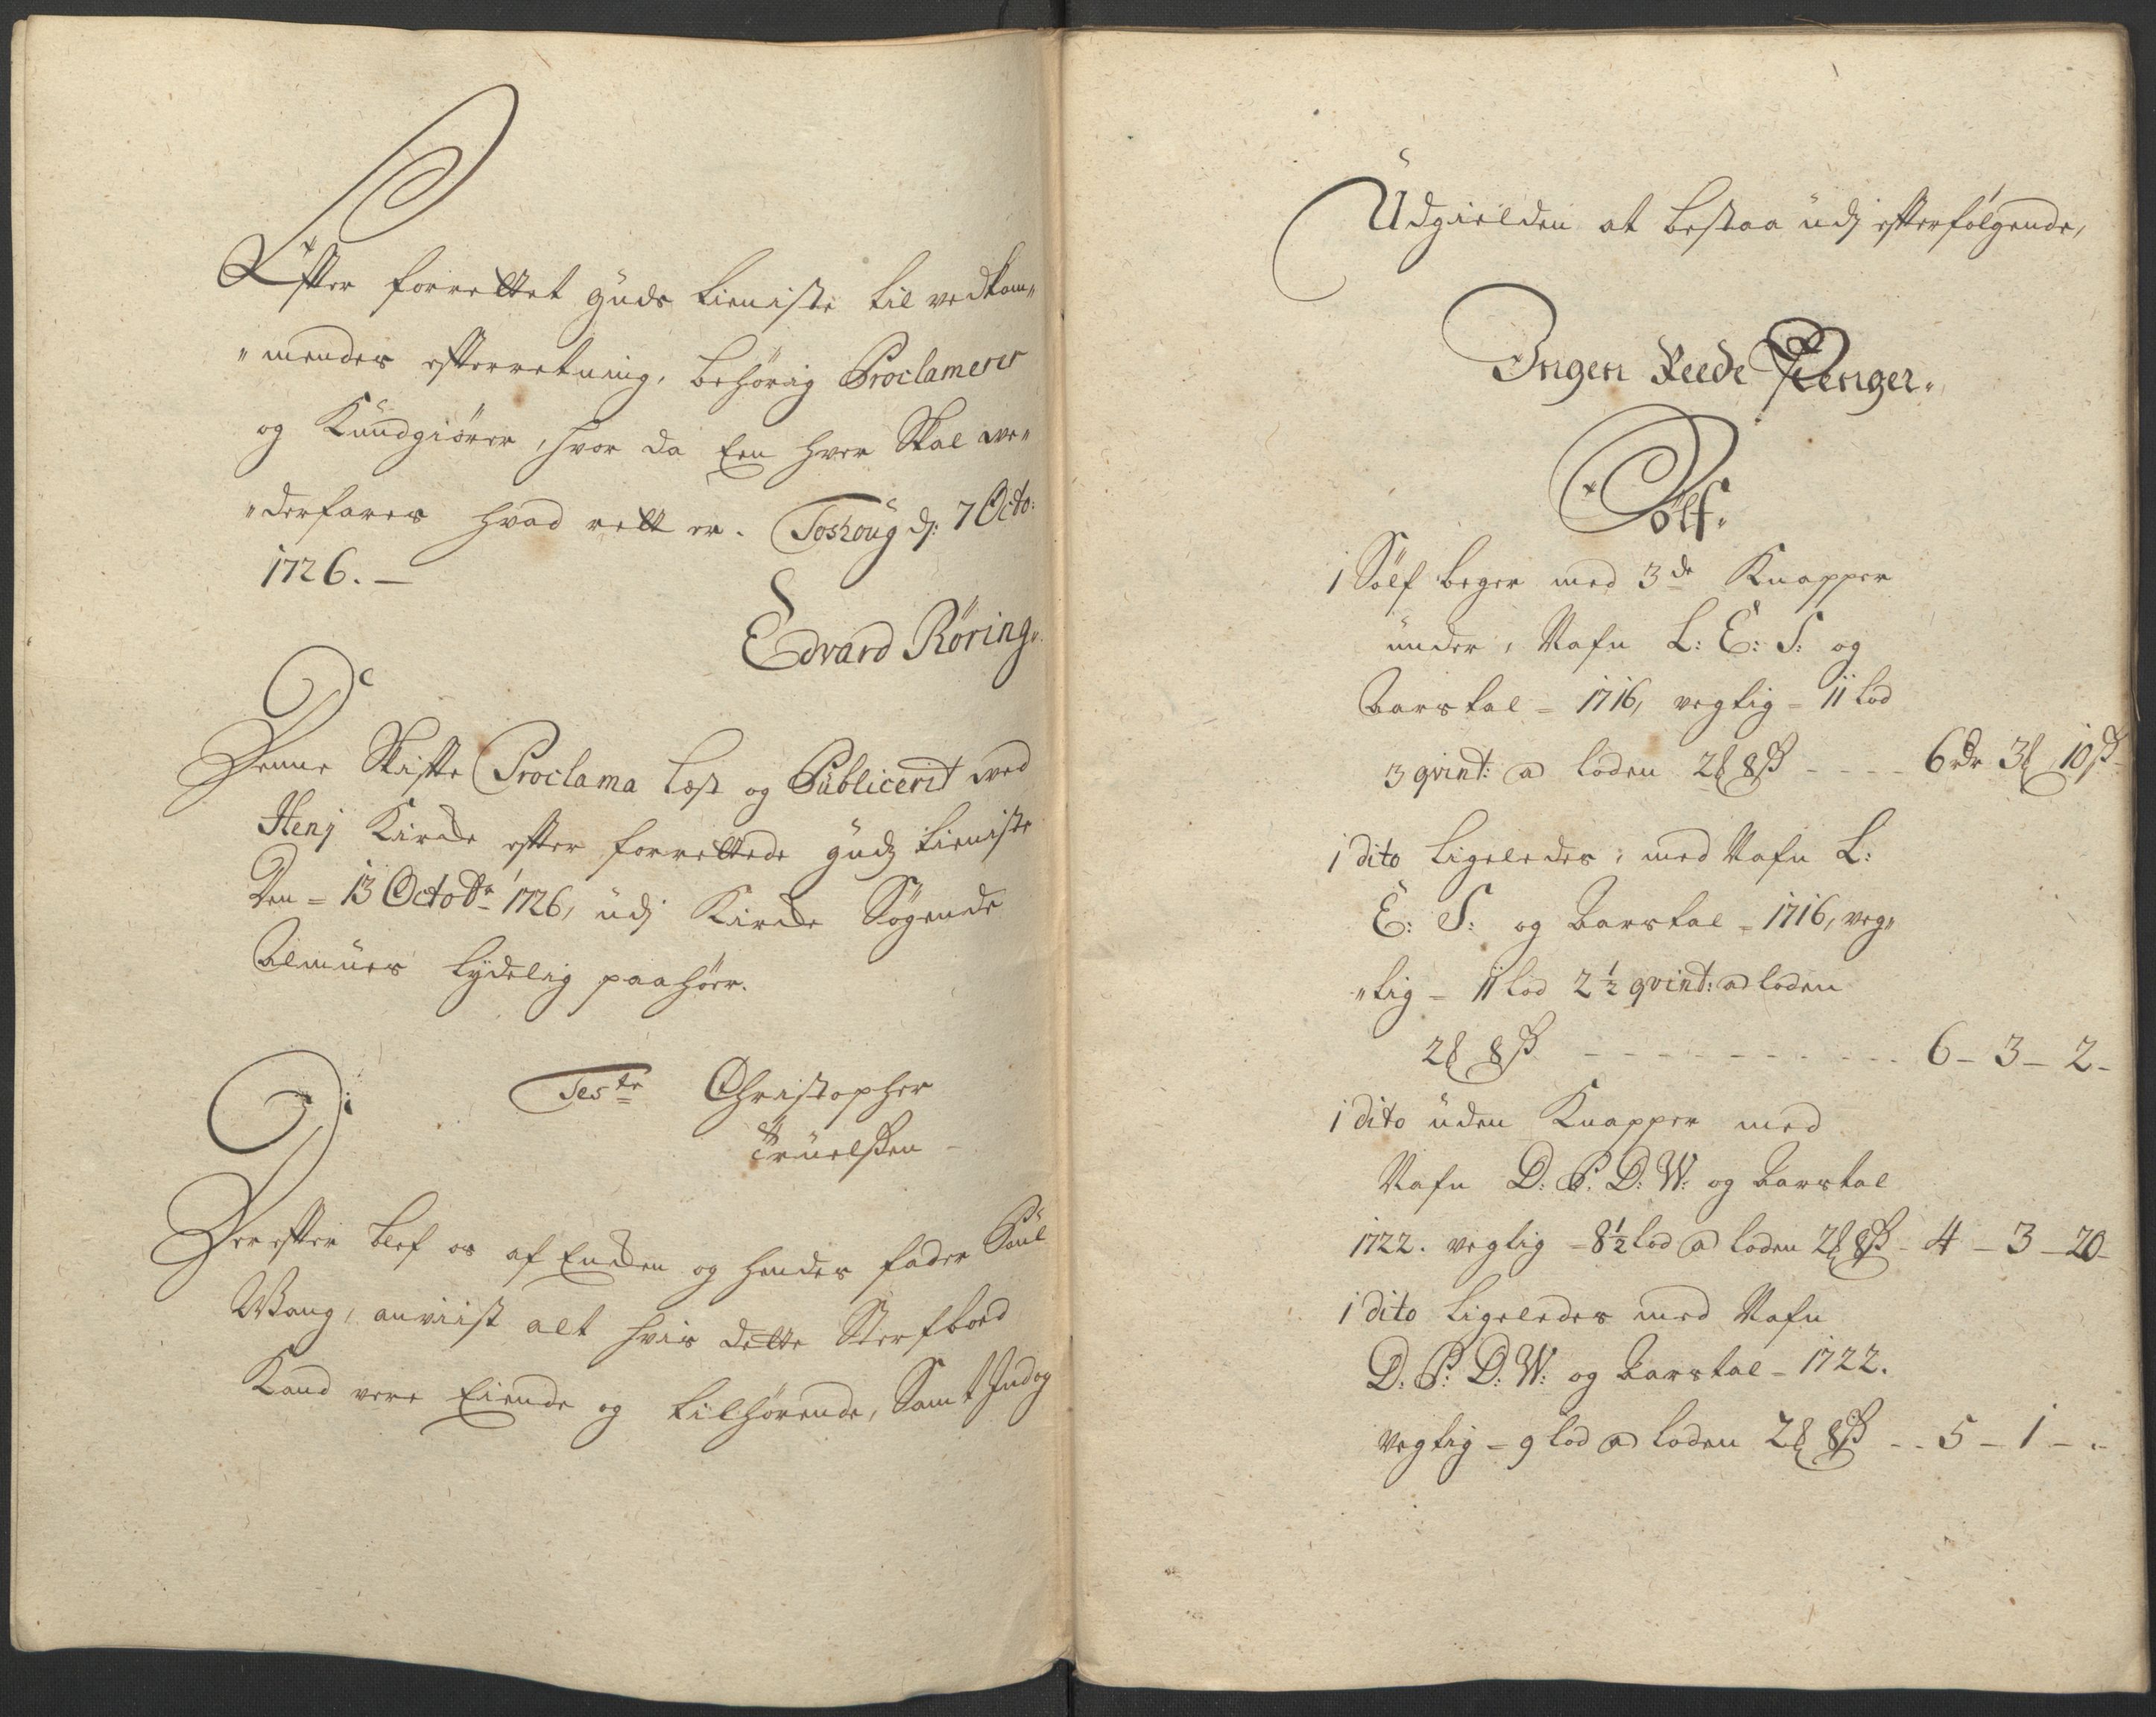 Efter forrettet Guds tieniste til vedkom„
„mendes efterretning, behörig Proclamerer
og Kundgiörer, hvor da Een hver Skal we„
„derfares hvad rett er. Toshoug dj: 7 Octo:
1726. —
Edvard Röring.
Denne Skifte Proclama Læst og Publicerit wed
Henj Kircke efter forrettede Gudz tieniste
Den = 13 Octobr 1726, udj Kircke Sögende
Almues lydelig paahör.
Teste Christopher
Truelssen —
Der efter blef os af Encken og hendes fader Poul
Wang, anviist alt hvis dette Sterfboed
Kand vere Eiende og tilhörende, Samt Ind og
Udgielden at bestaa udj efterfölgende,
Ingen Reede Penger.
Sölf.
1 Sölf beger med 3de Knapper
under, Nafn L: E: S: og
Aarstal = 1716, vegtig = 11 lod
3 qvint: a loden 2 8 ß - - - - 6 rdr 3 10 ß
1 dito Ligeledes, med Nafn L:
E: S: og Aarstal = 1716, veg„
„tig = 11 lod 2 1/2 qvint: a loden
2 8 ß - - - - - - - - - - 6 - 3 - 2 -
1 dito uden Knapper med
Nafn D: P: D: W: og Aarstal
1722. vegtig = 8 1/2 lod a loden 2 8 ß - 4 - 3 - 20 -
1 dito Ligeledes med Nafn
D: P: D: W: og Aarstal = 1722.
Vegtig = 9 lod a loden 2 8 ß - - 5 - 1 - . -